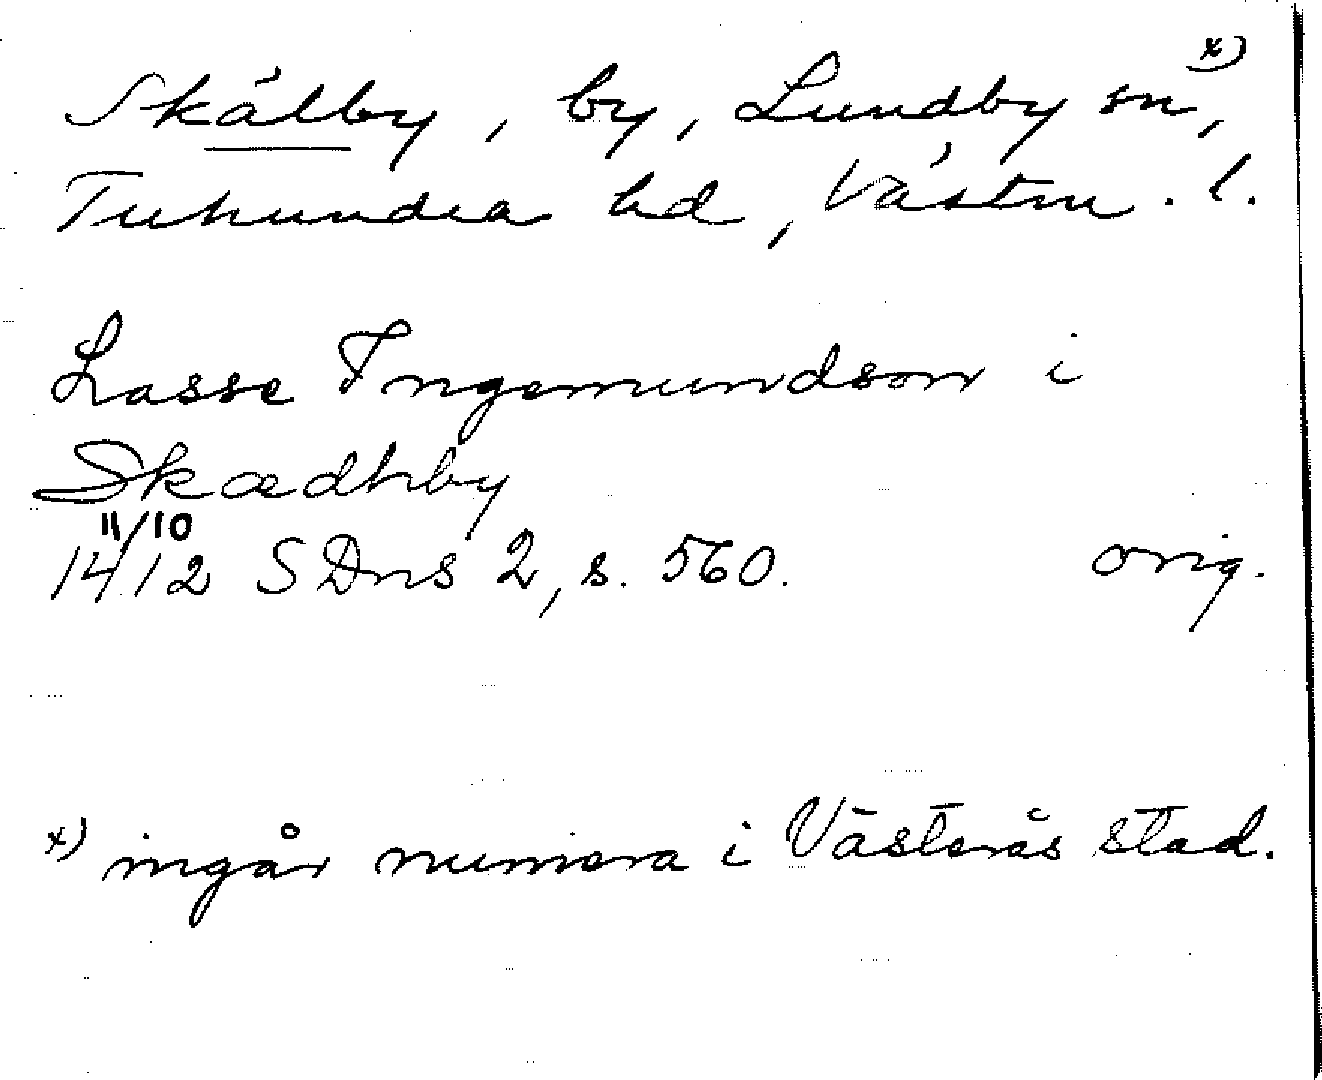 Skälby, by, Lundby sn, x)
Tuhundra hd, Västm. l.
Lasse Ingemundson i
Skædhby
11/10
1412 SDns 2, s. 560. orig.
x) ingår numera i Västerås stad.